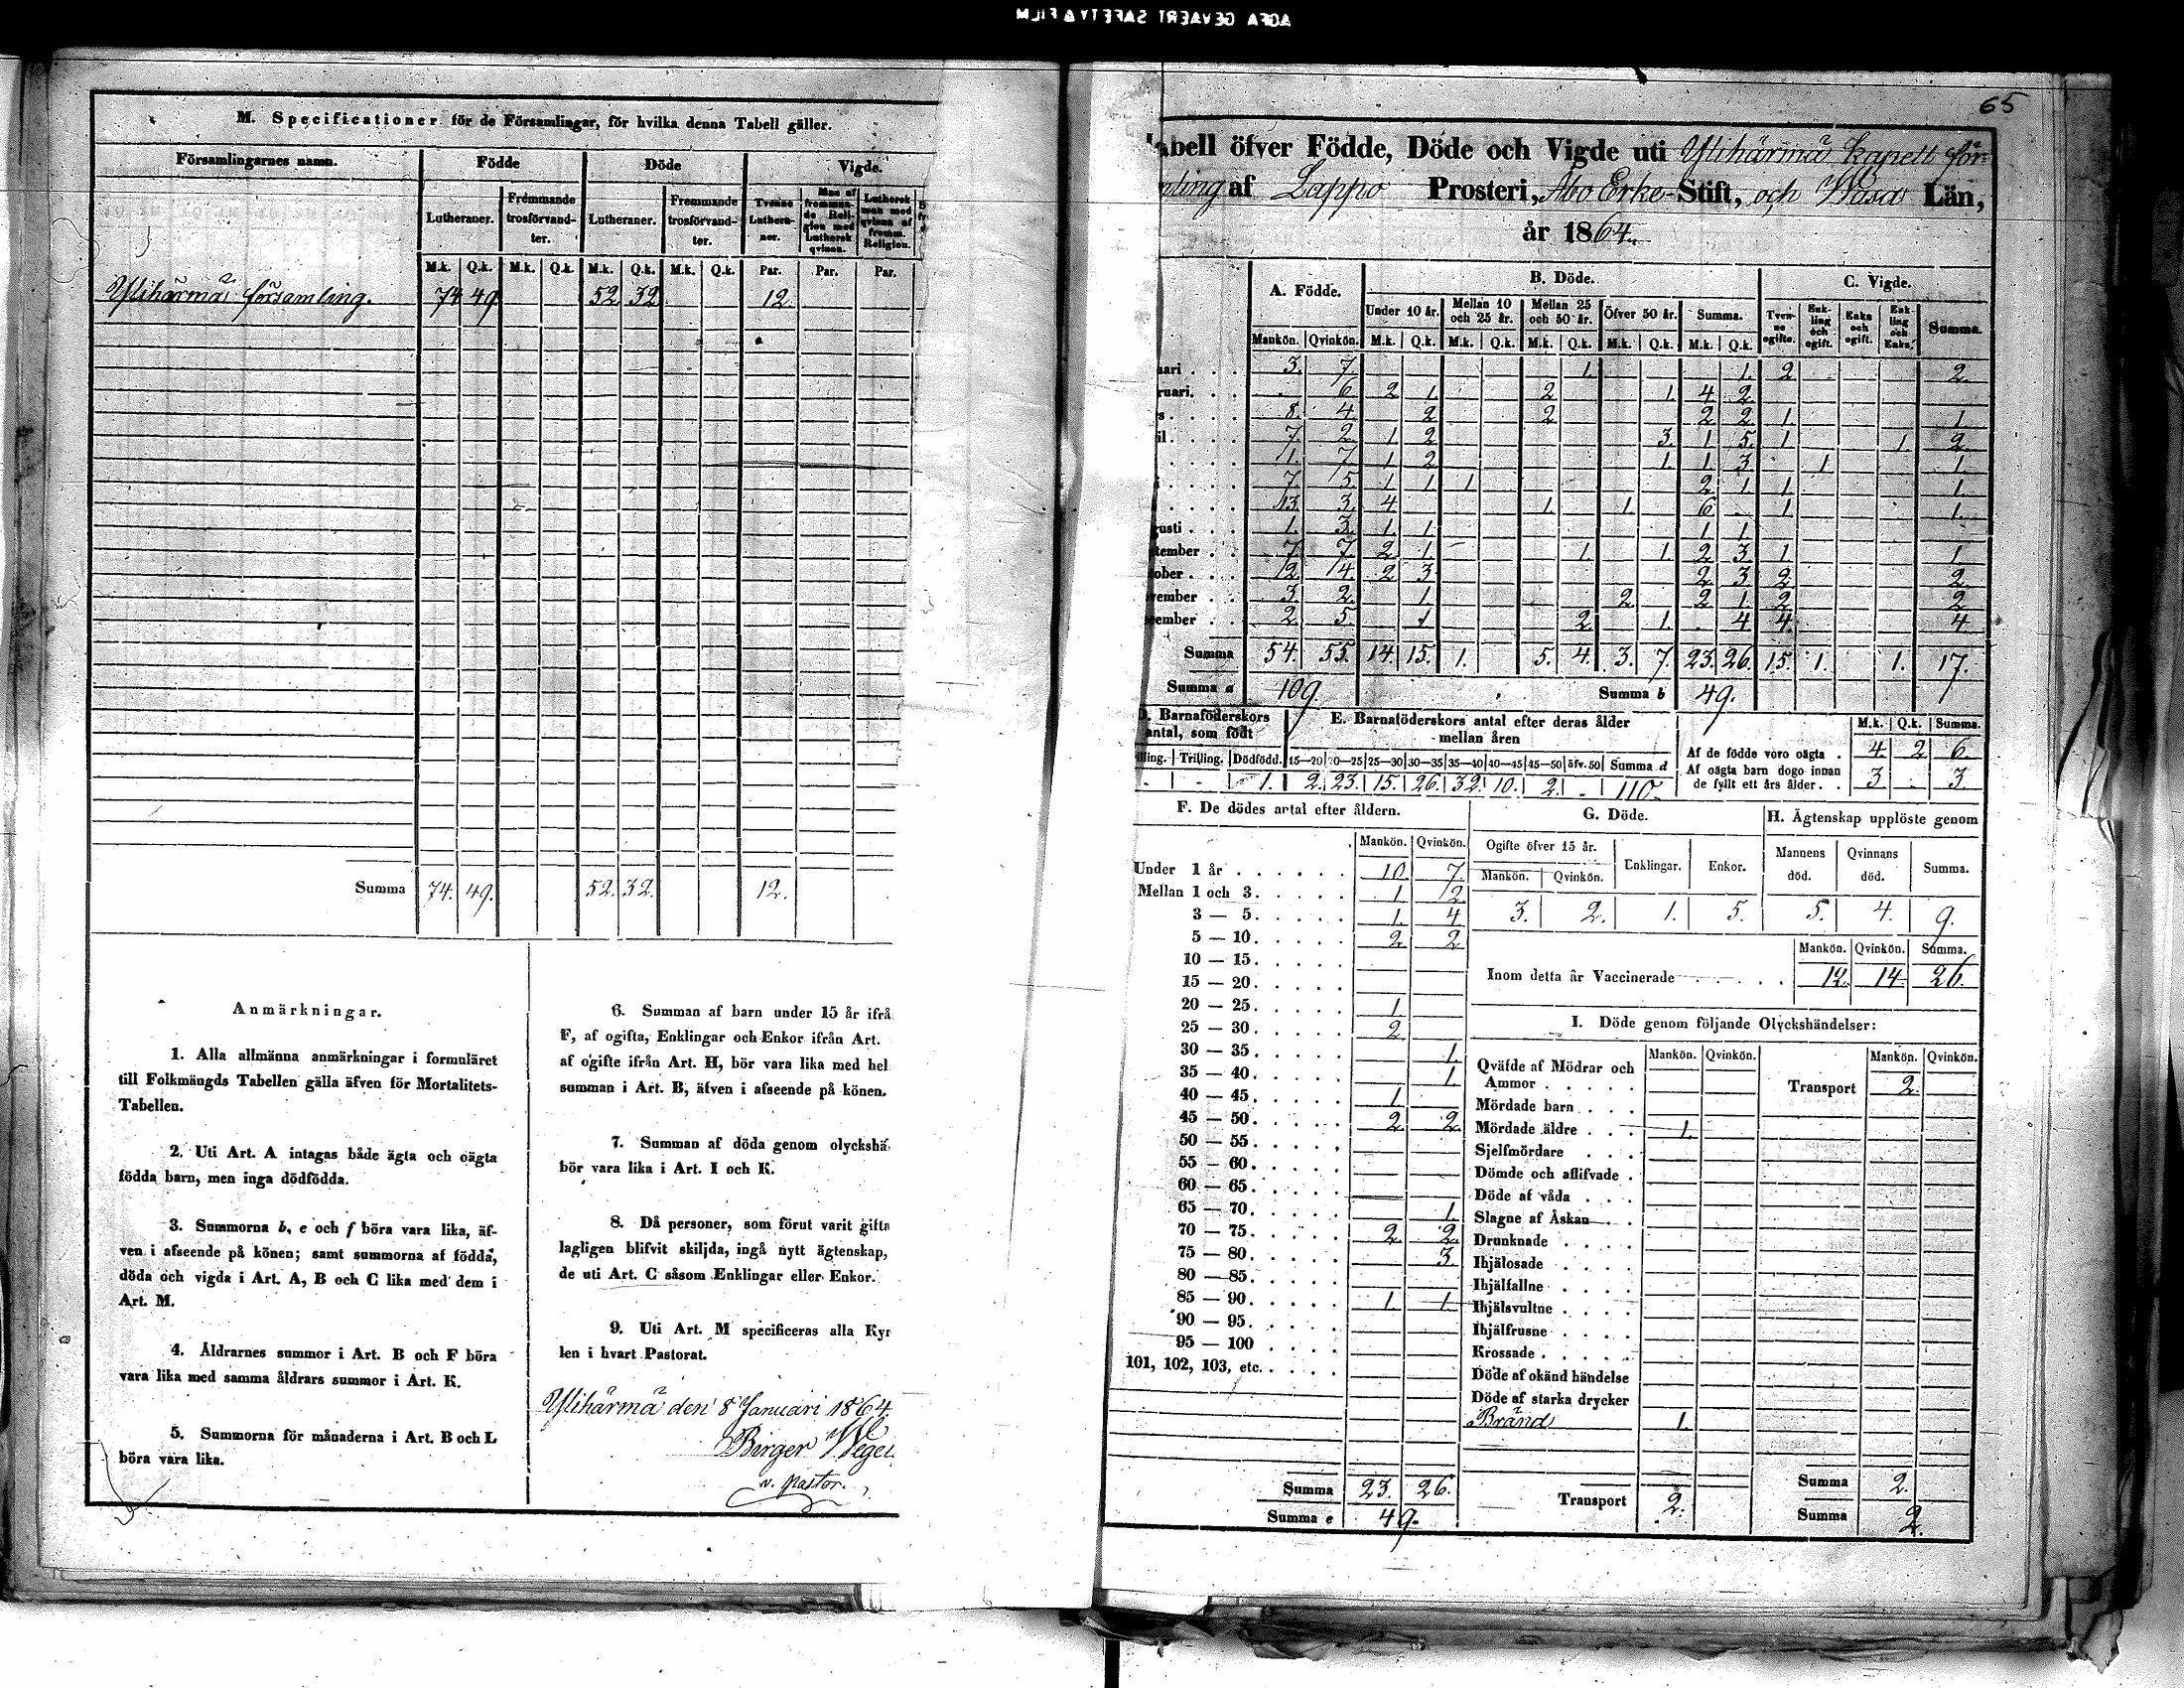 AGFA GEVAERT SAFETY FILM
M. Specificationer för de Församlingar, för hvilka denna Tabell gäller.
Församlingarnes namn. Födde Döde Vigde.
Lutheraner. Fremmande trosförvandter. Lutheraner. Fremmande trosförvandter. Tvenne Lutheraner. Man af fremmande Religion med Luthersk qvinna. Luthersk man med qvinna af fremm. Religion.
M.k. Q.k. M.k. Q.k. M.k. Q.k. M.k. Q.k. Par. Par. Par.
Ylihärmä församling. 74 49 52 32 12
Summa 74. 49. 52. 32. 12.
Anmärkningar.
1. Alla allmänna anmärkningar i formuläret
till Folkmängds Tabellen gälla äfven för Mortalitets-
Tabellen.
2. Uti Art. A intagas både ägta och oägta
födda barn, men inga dödfödda.
3. Summorna b, e och f böra vara lika, äf-
ven i afseende på könen; samt summorna af födda,
döda och vigda i Art. A, B och C lika med dem i
Art. M.
4. Åldrarnes summor i Art. B och F böra
vara lika med samma åldrars summor i Art. K.
5. Summorna för månaderna i Art. B och L
böra vara lika.
6. Summan af barn under 15 år ifrå
F, af ogifta, Enklingar och Enkor ifrån Art.
af ogifte ifrån Art. H, bör vara lika med hel
summan i Art. B, äfven i afseende på könen.
7. Summan af döda genom olyckshä
bör vara lika i Art. I och K.
8. Då personer, som förut varit gifta
lagligen blifvit skiljda, ingå nytt ägtenskap,
de uti Art. C såsom Enklingar eller Enkor.
9. Uti Art. M specificeras alla Kyr
len i hvart Pastorat.
Ylihärmä den 8 Januari 1864
Birger Wegel
v. Pastor.
65
abell öfver Födde, Döde och Vigde uti Ylihärmä kapell för-
mling af Lappo Prosteri, Åbo Erke-Stift, och Wasa Län,
år 1864.
A. Födde. B. Döde. C. Vigde.
Under 10 år. Mellan 10 och 25 år. Mellan 25 och 50 år. Öfver 50 år. Summa. Tvenne ogifte. Enkling och ogift. Enka och ogift. Enkling och Enka. Summa.
Mankön. Qvinkön. M.k. Q.k. M.k. Q.k. M.k. Q.k. M.k. Q.k. M.k. Q.k.
uari 3. 7. 1. 1. 2 2.
ruari. 6 2 1. 2 1. 4 2
s 8. 4. 2 2 2 2 1. 1.
il 7. 2. 1 2 3. 1 5. 1 1. 2.
1. 7. 1. 2 1. 1. 3 1 1.
7. 5. 1. 1 1 2 1. 1 1.
13 3. 4 1. 1. 6 1 1.
gusti 1. 3. 1. 1. 1 1.
tember 7. 7. 2 1. 1. 1. 2 3. 1 1.
tober 2 14. 2 3 2 3 2 2
vember 3. 2. 1. 2 2 1. 2 2
ember 2 5. 1 2. 1. 4 4. 4
Summa 54. 55. 14. 15. 1. 5. 4. 3. 7. 23. 26. 15. 1. 1. 17.
Summa a 109 Summa b 49.
D. Barnaföderskors antal, som födt E. Barnaföderskors antal efter deras ålder mellan åren
M.k. Q.k. Summa.
illing. Trilling. Dödfödd. 15—20 20—25 25—30 30—35 35—40 40—45 45—50 öfv. 50 Summa d
- - 1. 2. 23. 15. 26. 32. 10. 2. . 110.
Af de födde voro oägta 4. 2 6.
Af oägta barn dogo innan de fyllt ett års ålder 3 . 3.
F. De dödes antal efter åldern.
Mankön. Qvinkön.
Under 1 år 10. 7.
Mellan 1 och 3. 1 12
3 — 5. 1. 4
5 — 10. 2 2
10 — 15.
15 — 20.
20 — 25. 1.
25 — 30. 2
30 — 35. 1.
35 — 40. 1.
40 — 45. 1.
45 — 50. 2. 2.
50 — 55.
55 — 60.
60 — 65.
65 — 70. 1.
70 — 75. 2. 2.
75 — 80. 3
80 — 85.
85 — 90. 1. 1.
90 — 95.
95 — 100
101, 102, 103, etc.
Summa 23. 26.
Summa e 49.
G. Döde. H. Ägtenskap upplöste genom
Ogifte öfver 15 år. Enklingar. Enkor. Mannens död. Qvinnans död. Summa.
Mankön. Qvinkön.
3. 2. 1. 5. 5. 4. 9.
Mankön. Qvinkön. Summa.
Inom detta år Vaccinerade 12. 14. 26.
I. Döde genom följande Olyckshändelser:
Mankön. Qvinkön. Mankön. Qvinkön.
Qväfde af Mödrar och Ammor Transport 2.
Mördade barn
Mördade äldre 1.
Sjelfmördare
Dömde och aflifvade
Döde af våda
Slagne af Åskan
Drunknade
Ihjälosade
Ihjälfallne
Ihjälsvultne
Ihjälfrusne
Krossade
Döde af okänd händelse
Döde af starka drycker
Bränd 1.
Summa 2.
Transport 2. Summa 2.